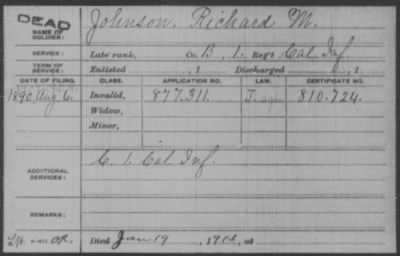 DEAD
NAME OF SOLDIER: Johnson, Richard M.
SERVICE: Late rank, Co. B, 1 Reg't Cal. Inf.
TERM OF SERVICE: Enlisted , 1 Discharged , 1
DATE OF FILING. CLASS. APPLICATION NO. LAW. CERTIFICATE NO.
1890 Aug 6. Invalid, 877.311 810.724
Widow,
Minor,
ADDITIONAL SERVICES: C. 1. Cal Inf.
REMARKS:
Died Jan 19, , at